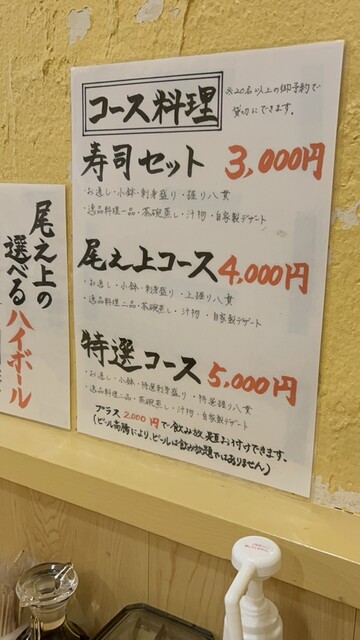 コース料理
※20名以上の御予約で
貸切にできます。
寿司セット 3,000円
・お造し・小鉢・刺身盛り・握り八貫
・逸品料理一品・茶碗蒸し・汁物・自家製デザート
尾之上コース 4,000円
・お造し・小鉢・刺身盛り・上握り八貫
・逸品料理二品・茶碗蒸し・汁物・自家製デザート
特選コース 5,000円
・お造し・小鉢・特選刺身盛り・特選握り八貫
・逸品料理二品・茶碗蒸し・汁物・自家製デザート
プラス2,000円で飲み放題お付けできます。
(ビール高騰により、ビールは飲み放題ではありません)
尾之上の
選べる
ハイボール